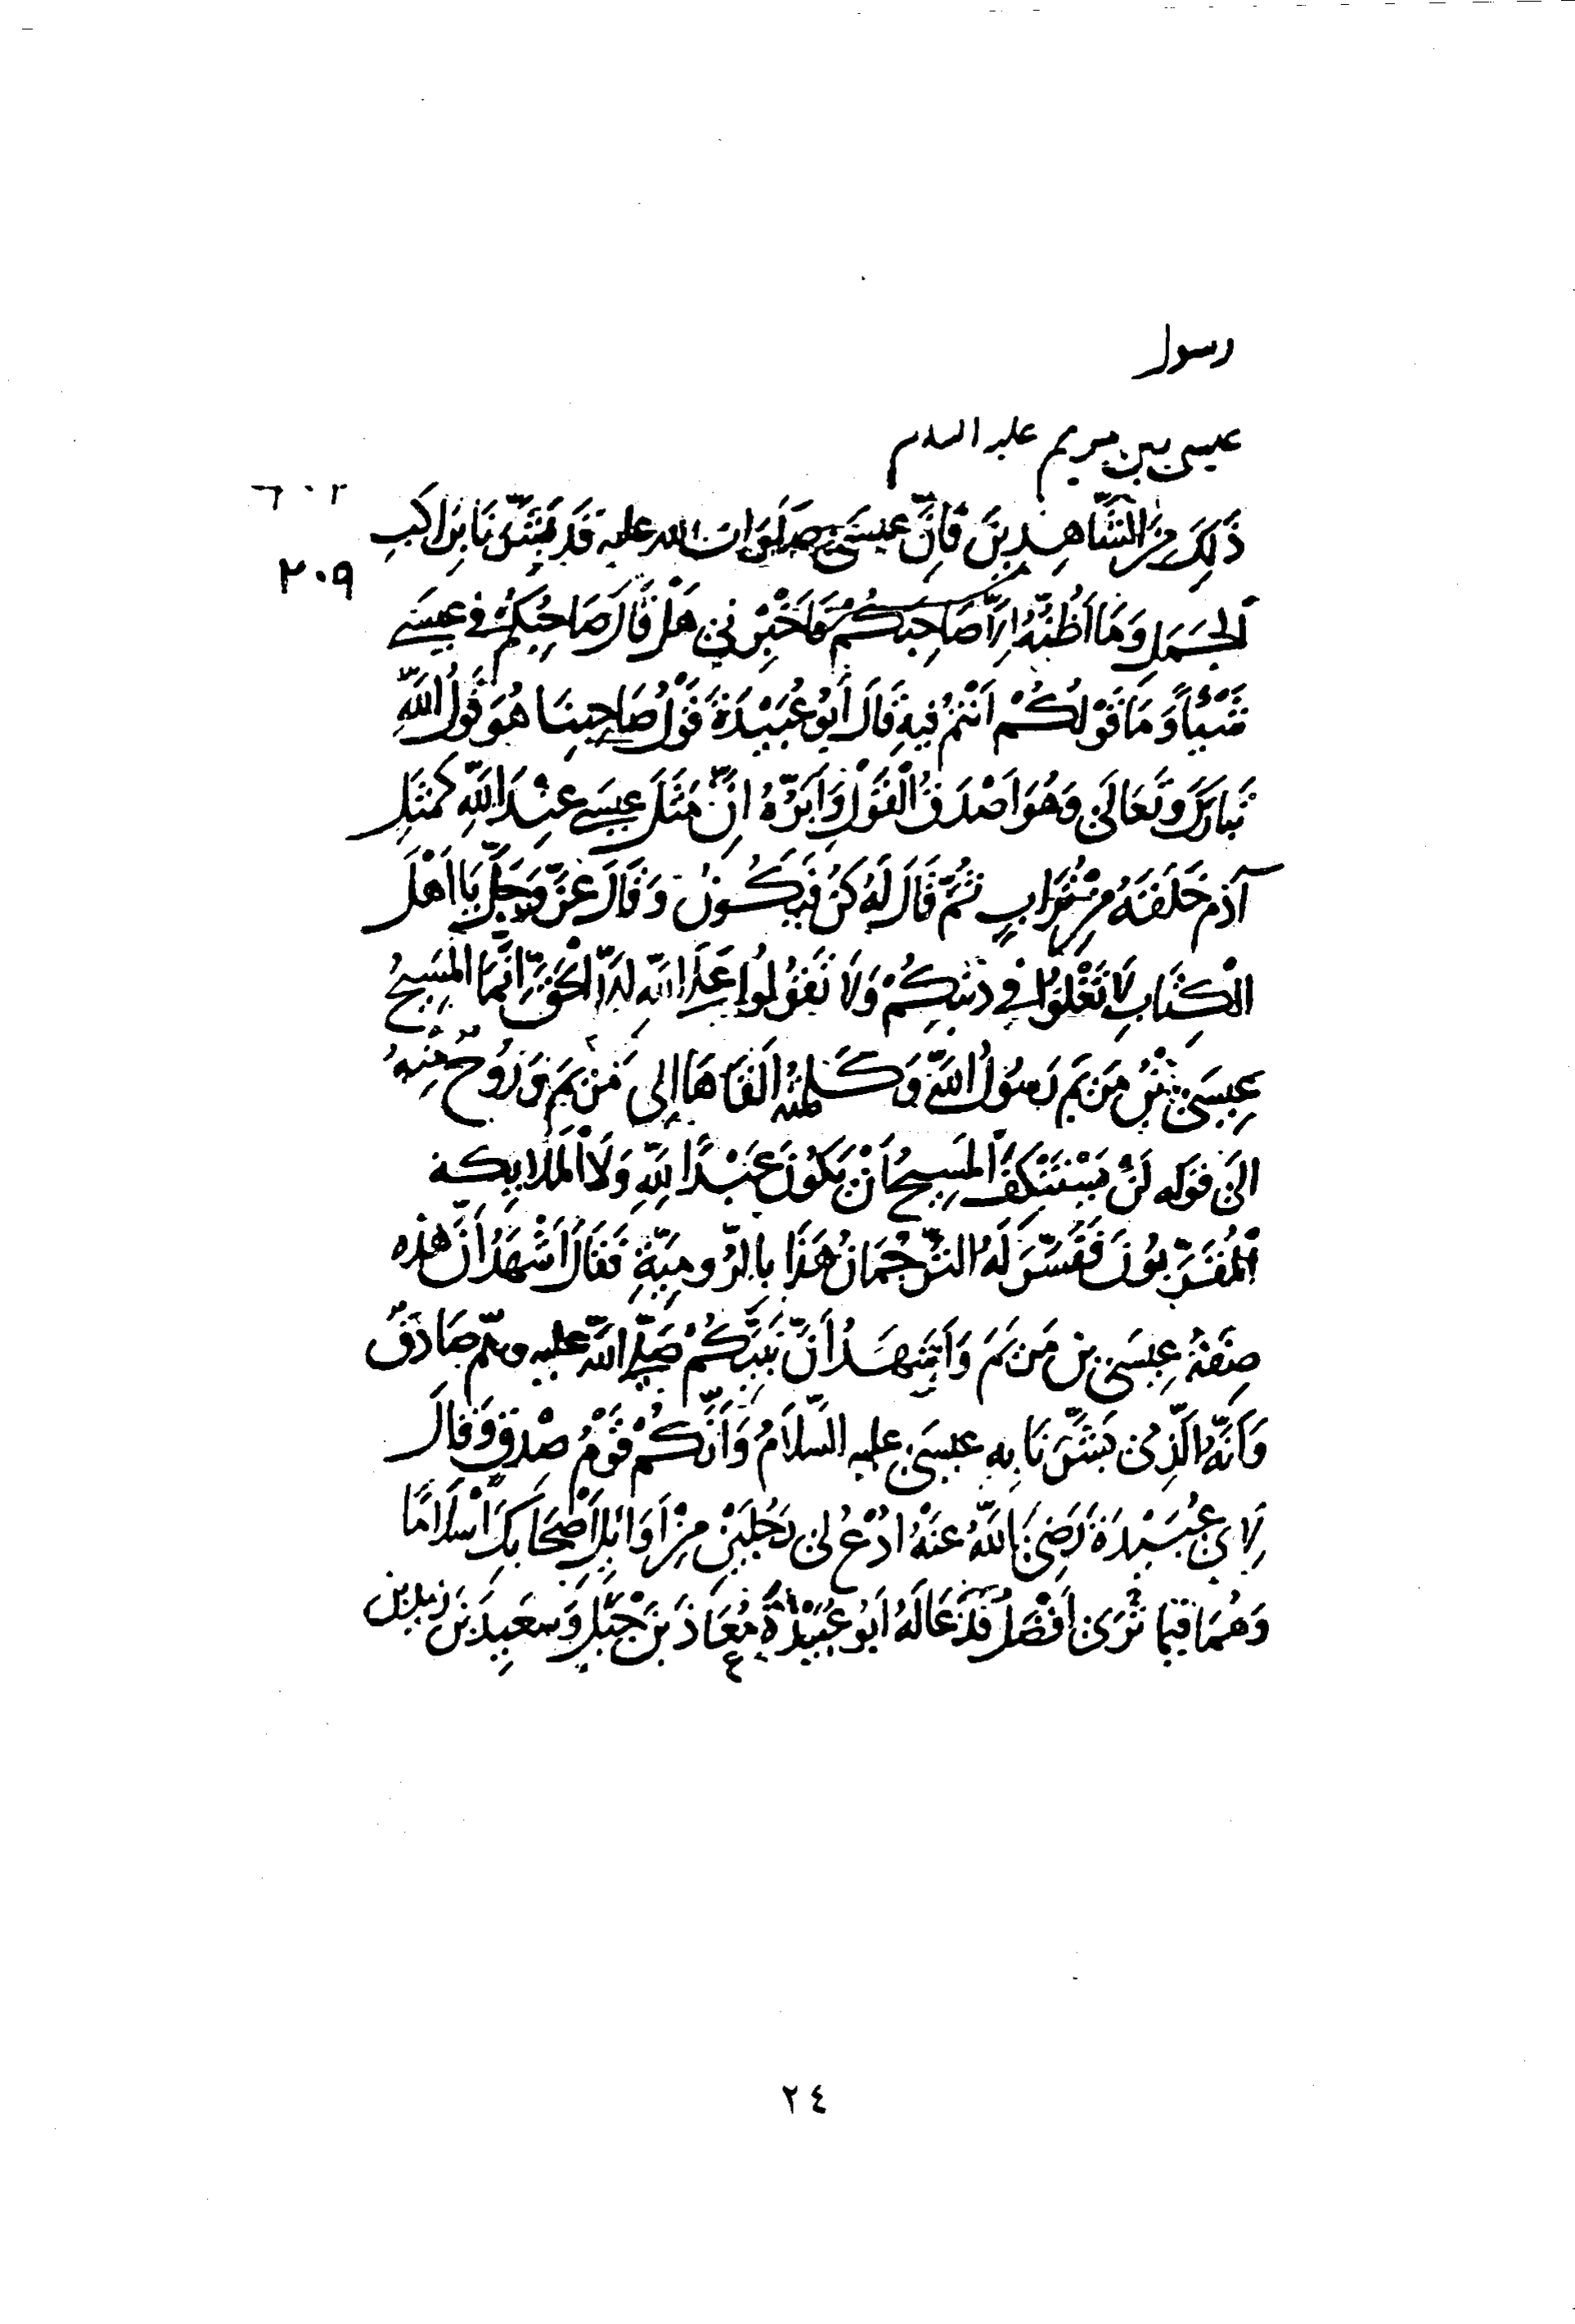 رسول
عيسى بن مريم عليه السلام
٢٠٦
ذَلِكَ مِنَ الشَّاهِدِينَ فَاِنَّ عيسَى صَلَوَات الله عليه قَد بَشَّرَنَا بِرَاكِبِ
٢٠٩
اَلجَمَلِ وَمَا اَظُنُّهُ اِلَّا صَاحِبَكُمْ فَاَخْبِرْنِي هَلْ قَالَ صَاحِبُكُمْ في عِيسَى
شَيْئًا وَمَا قَوْلُكُمْ اَنْتُمْ فِيهِ قَالَ أَبُو عُبَيْدَةَ قَوْلُ صَاحِبِنَا هُوَ قَولُ اللَّهِ
تَبَارَكَ وَتَعَالَى وَهُوَ اَصْدَقُ الْقَوْلِ وَاَبَرُّهُ اِنَّ مَثَلَ عِيسَى عِنْدَ اللَّهِ كَمَثَلِ
آدَمَ خَلَقَهُ مِنْ تُرَابٍ ثُمَّ قَالَ لَهُ كُنْ فَيَكُونُ وَقَالَ عَزَّ وَجَلَّ يَا اَهْلَ
الْكِتَابِ لَا تَغْلُوا في دِينِكُمْ وَلَا تَقُولُوا عَلَى اللَّهِ اِلَّا الْحَقَّ اِنَّمَا الْمَسِيحُ
عِيسَى بْنُ مَرْيَمَ رَسُولُ اللَّهِ وَكَلِمَتُهُ اَلْقَاهَا إِلى مَرْيَمَ وَرُوحٌ مِنْهُ
اِلَى قَولِه لَنْ يَسْتَنْكِفَ الْمَسِيحُ اَنْ يَكُونَ عَبْدًا لِلَّهِ وَلَا الْمَلَايِكَة
الْمُقَرَّبُونَ فَفَسَّرَ لَهُ التَّرْجُمَانُ هَذَا بِالرُّومِيَّةِ فَقَالَ اَشْهَدُ اَنَّ هَذِه
صِفَةُ عِيسَى بن مَرْيَمَ وَاَشْهَدُ اَنَّ نَبِيَّكُمْ صَلَّى اللَّه عليه وسلّم صَادِقٌ
وَاَنَّهُ الَّذِى بَشَّرَنَا بِهِ عيسَى عليه السَّلَامُ وَاَنَّكُمْ قَوْمُ صْدِقٍ وَقَالَ
لِاَبي عُبَيْدَةَ رَضِىَ اللَّهُ عَنْهُ ادْعُ لِى رَجُلَيْنِ مِنْ اَوَائِلِ اَصْحَابِكَ اِسْلَامًا
وَهُمَا فيمَا تَرَى اَفْضَلُ فَدَعَا لَهُ اَبُو عُبَيْدَةَ مُعَاذَ بَنَ جَبَلٍ وَسَعِيدَ بَنَ زيد بن
٢٤